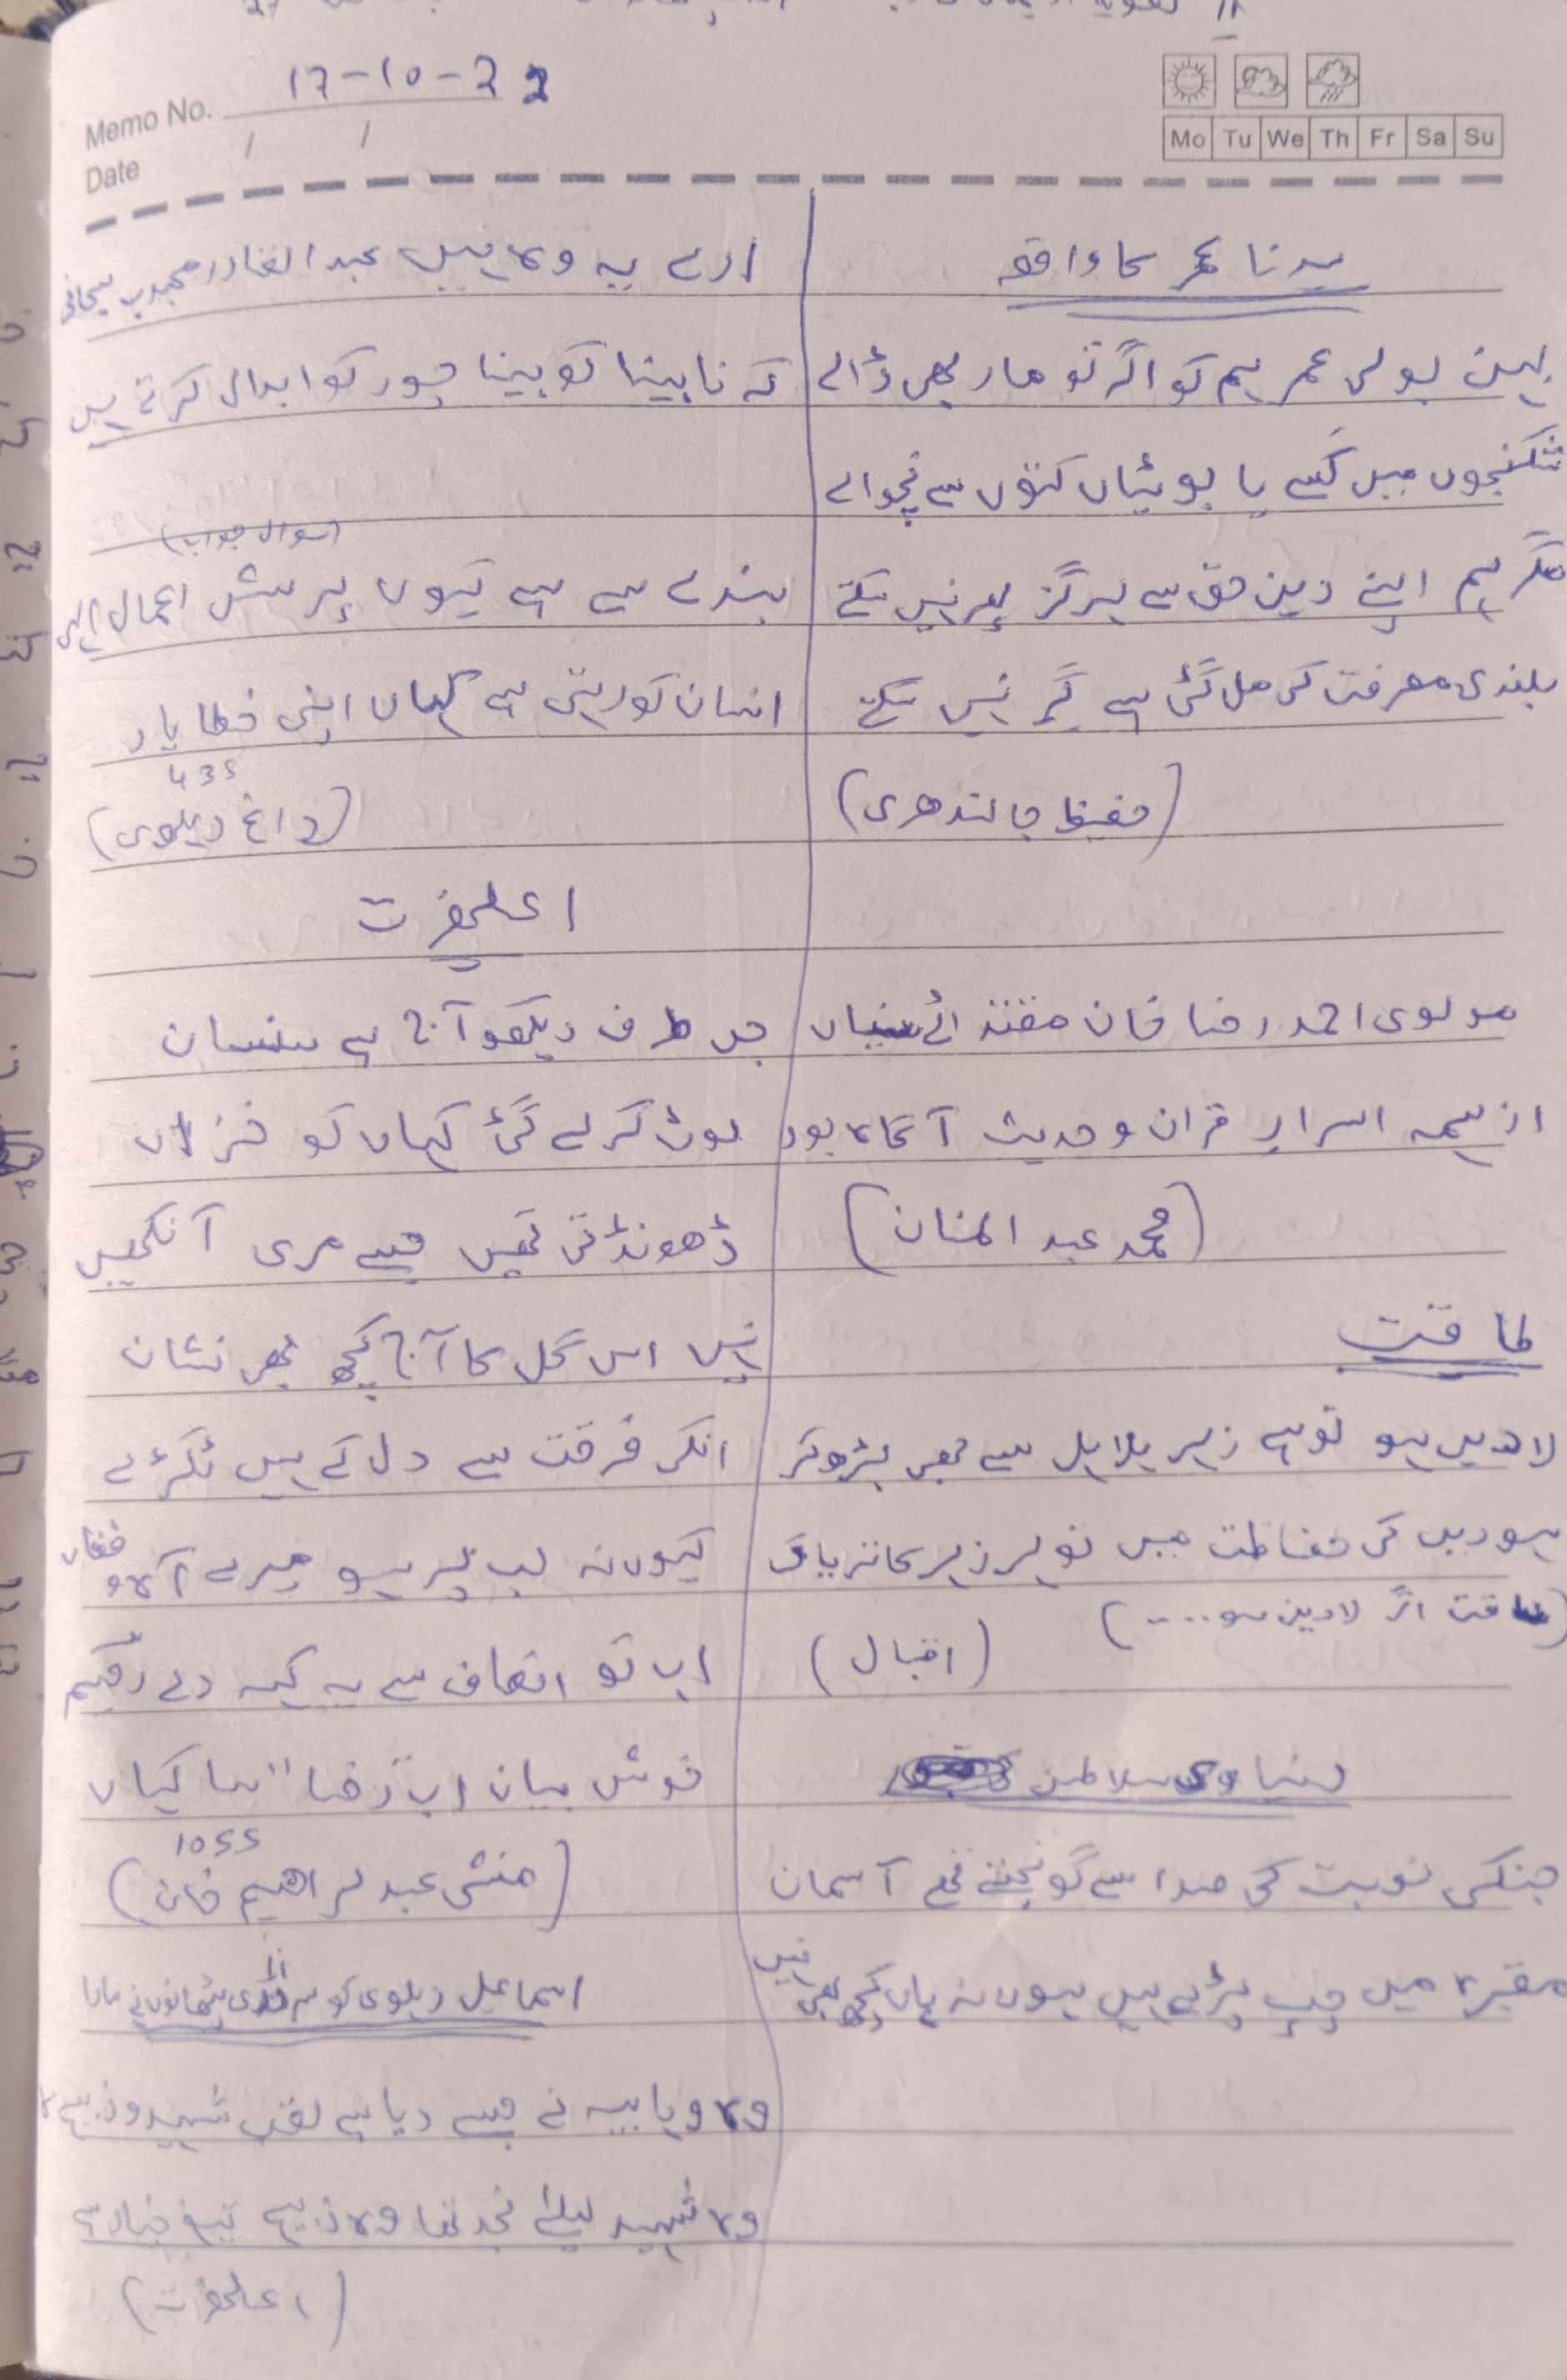 Memo No. 17-10-22
Date / /
Mo Tu We Th Fr Sa Su
سیدنا عمر کا واقعہ
بہن بولی عمر ہم کو اگر تو مار بھی ڈالے
شکنجوں میں کَسے یا بوٹیاں کتوں سے نچوالے
مگر ہم اپنے دین حق سے ہرگز پھر نہیں سکتے
بلندی معرفت کی مل گئی ہے گر نہیں سکتے
(حفیظ جالندھری)
مولوی احمد رضا خان مقتدائے سنیاں
از ہمہ اسرارِ قران و حدیث آگاہ بود
(محمد عبد المنان)
طاقت
لا دیں ہو تو ہے زہر ہلاہل سے بھی بڑھ کر
ہو دیں کی حفاظت میں تو ہر زہر کا تریاق
(طاقت اگر لادین ہو....)
(اقبال)
دنیاوی سلاطین
جنکی نوبت کی صدا سے گونجتے تھے آسمان
مقبرہ میں چپ پڑے ہیں ہوں نہ ہاں کچھ بھی نہیں
ارے یہ وہ ہیں عبد القادر محبوب سبحانی
کہ نابینا کو بینا چور کو ابدال کرتے ہیں
(سوال جواب)
بندے سے ہے کیوں پرسش اعمال الہی
انسان کو رہتی ہے کہاں اپنی خطا یاد
435
(داغ دہلوی)
اعلحضرت
جس طرف دیکھو آج ہے سنسان
لوٹ کر لے گئی کہاں کو خزاں
ڈھونڈتی تھیں جسے مری آنکھیں
نہیں اس گل کا آج کچھ بھی نشان
انکی فرقت سے دل کے ہیں ٹکڑے
کیوں نہ لب پر ہو میرے آہ و فغاں
اب تو انصاف سے یہ کہہ دے رقیم
خوش بیان اب "رضا" سا کہاں
1055
(منشی عبد براھیم خان)
اسماعیل دہلوی کو سرحدی پٹھانوں نے مارا
وہ وہابیہ نے جسے دیا ہے لقب شہید و ذبیح کا
وہ شہید لیلئے نجد تھا وہ ذبیح تیغ خیار ہے
(اعلحضرت)